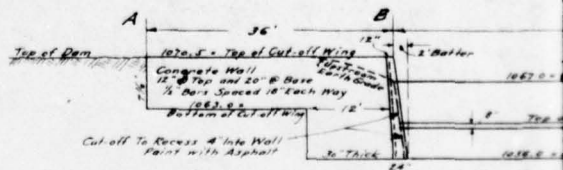 A B
36'
12"
2' Batter
Top of Dam
1070.5 = Top of Cut-off Wing
Upstream
Earth Grade
Concrete Wall
12" @ Top and 20" @ Base
1067.0 =
Bars Spaced 18" Each Way
1063.0 =
Bottom of Cut-off Wing
12'
8"
Top
Cut-off To Recess 4" Into Wall
Paint with Asphalt
30" Thick
24"